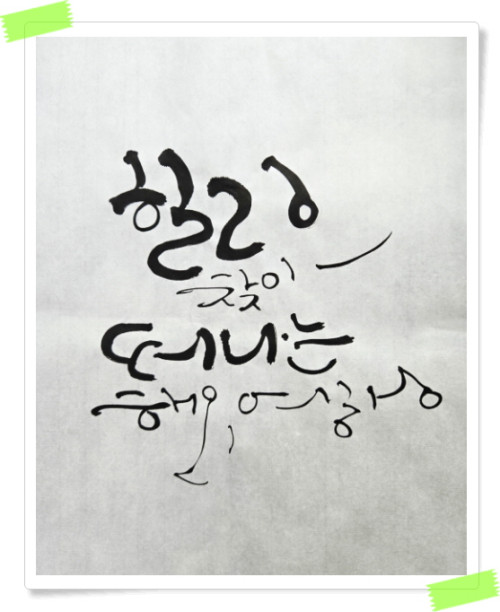 힐링
찾아
떠나는
해외여행